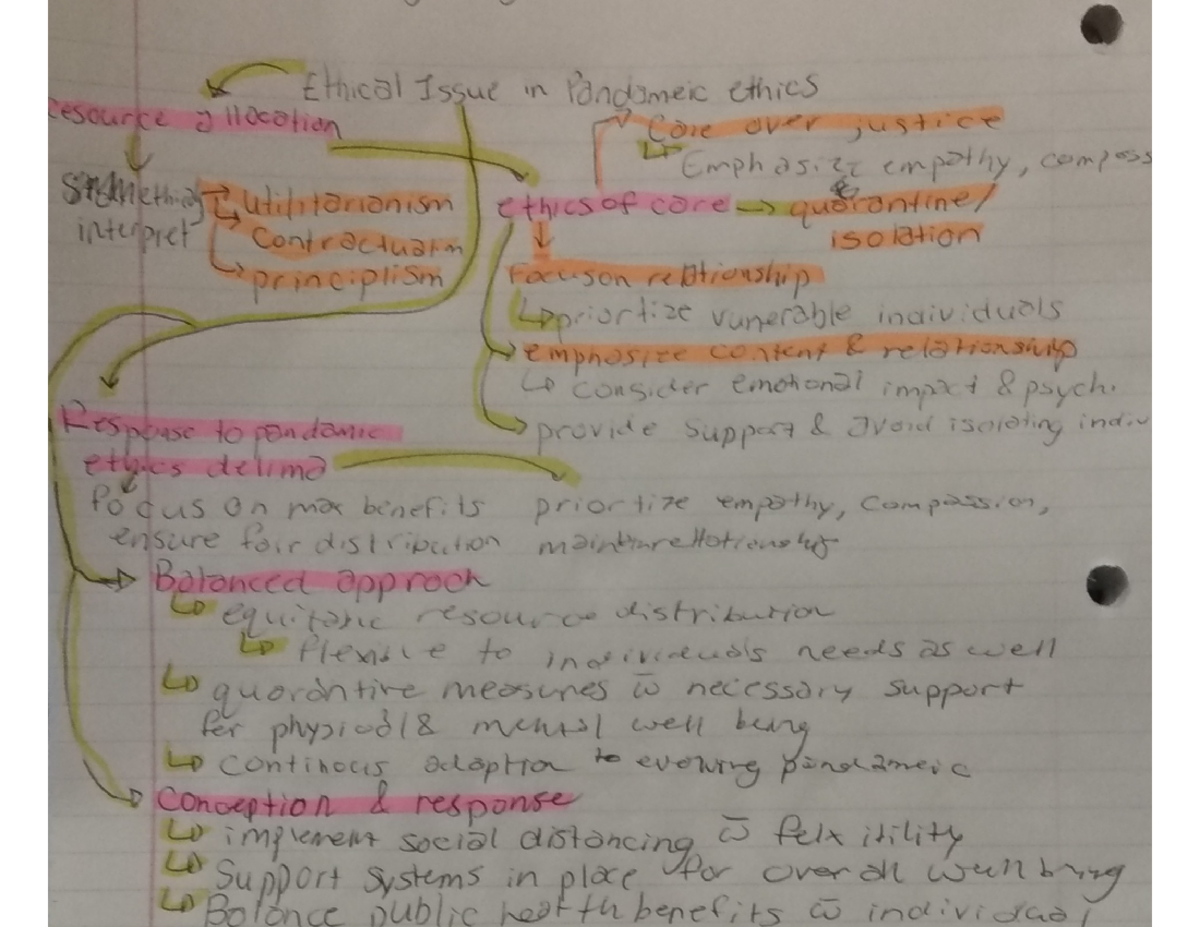 Ethical Issue in Pandameic ethics
resource allocation
Care over justice
Emphasize empathy, compass
interpret
utilitarianism
Contractuarm
principlism
ethics of care → quarantine/
isolation
Focus on relationship
priortize vunerable individuals
emphasize content & relationship
consider emotional impact & psych.
provide support & avoid isolating indiv
Response to pandamic
ethics delima
focus on max benefits
ensure fair distribution
priortize empathy, compassion,
Balanced approch
equitable resource distribution
flexible to individuals needs as well
quarantive measures w̄ necessary support
for physical & mental well being
continous adaption to evolving pandameic
Conception & response
implement social distancing w̄ felxibility
Support systems in place for overall well being
Balance public health benefits w̄ individual